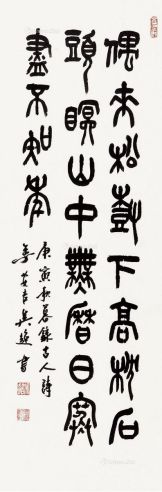 偶来松樹下高枕石
頭瞑山中無曆日寒
盡不知年
庚寅秋暮錄古人詩
書